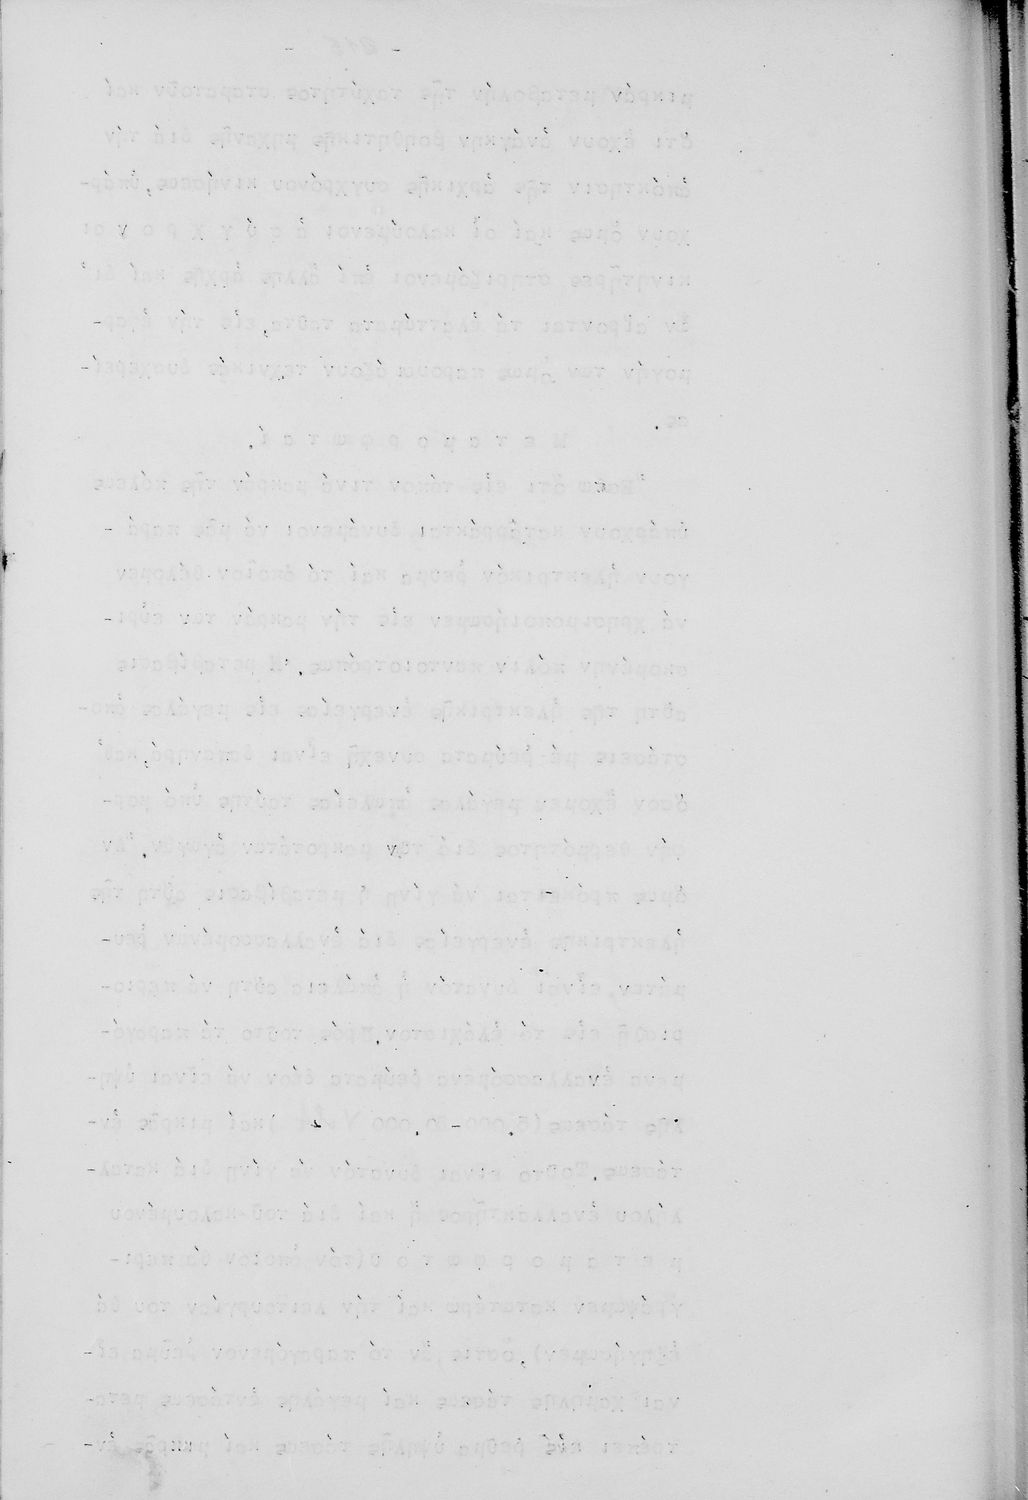 - 216 -
μικράν) μεταβολήν τῆς ταχύτητος σταματοῦν καί
ὅτι ἔχουν ἀνάγκην βοηθητικῆς μηχανῆς διά τήν
ἀπόκτησιν τῆς ἀρχικῆς συγχρόνου κινήσεως, ὑπάρ-
χουν ὅμως καί οἱ καλούμενοι ἀ σ ύ γ χ ρ ο ν οι
κινητῆρες στηριζόμενοι ἐπί ἄλλης ἀρχῆς καί δι'
ὧν αἴρονται τά ἐλαττώματα ταῦτα, εἰς τήν ἐφαρ-
μογήν των ὅμως παρουσιάζουν τεχνικάς δυσχερεί-
ας.
Μ ε τ α μ ο ρ φ ω τ α ί.
Ἔστω ὅτι εἰς τόπον τινά μακράν τῆς πόλεως
ὑπάρχουν καταρράκται δυνάμενοι νά μᾶς παρά-
γουν ἠλεκτρικόν ρεῦμα καί τό ὁποῖον θέλομεν
νά χρησιμοποιήσωμεν εἰς τήν μακράν των εὑρι-
σκομένην πόλιν παντοιοτρόπως. Ἡ μεταβίβασις
αὕτη τῆς ἠλεκτρικῆς ἐνεργείας εἰς μεγάλας ἀπο-
στάσεις μέ ρεύματα συνεχῆ εἶναι δαπανηρά, καθ'
ὅσον ἔχομεν μεγάλας ἀπωλείας ταύτης ὑπό μορ-
φήν θερμότητος διά τῶν μακροτάτων ἀγωγῶν. Ἄν
ὅμως πρόκειται νά γίνῃ ἡ μεταβίβασις αὕτη τῆς
ἠλεκτρικῆς ἐνεργείας διά ἐναλλασσομένων ρευ-
μάτων, εἶναι δυνατόν ἡ ἀπώλεια αὕτη νά περιο-
ρισθῇ εἰς τό ἐλάχιστον. Πρός τοῦτο τά παραγό-
μενα ἐναλλασσόμενα ρεύματα δέον νά εἶναι ὑψη-
λῆς τάσεως (5.000-30.000 Volt) καί μικρᾶς ἐν-
τάσεως. Τοῦτο εἶναι δυνατόν νά γίνῃ διά καταλ-
λήλου ἐναλλακτῆρος ἤ καί διά τοῦ καλουμένου
μ ε τ α μ ο ρ φ ω τ ο ῦ (τόν ὁποῖον θά περι-
γράψωμεν κατωτέρω καί τήν λειτουργίαν του θά
ἐξηγήσωμεν), ὅστις, ἄν τό παραγόμενον ρεῦμα εἶ-
ναι χαμηλῆς τάσεως καί μεγάλης ἐντάσεως μετα-
τρέπει εἰς ρεῦμα ὑψηλῆς τάσεως καί μικρᾶς ἐν-